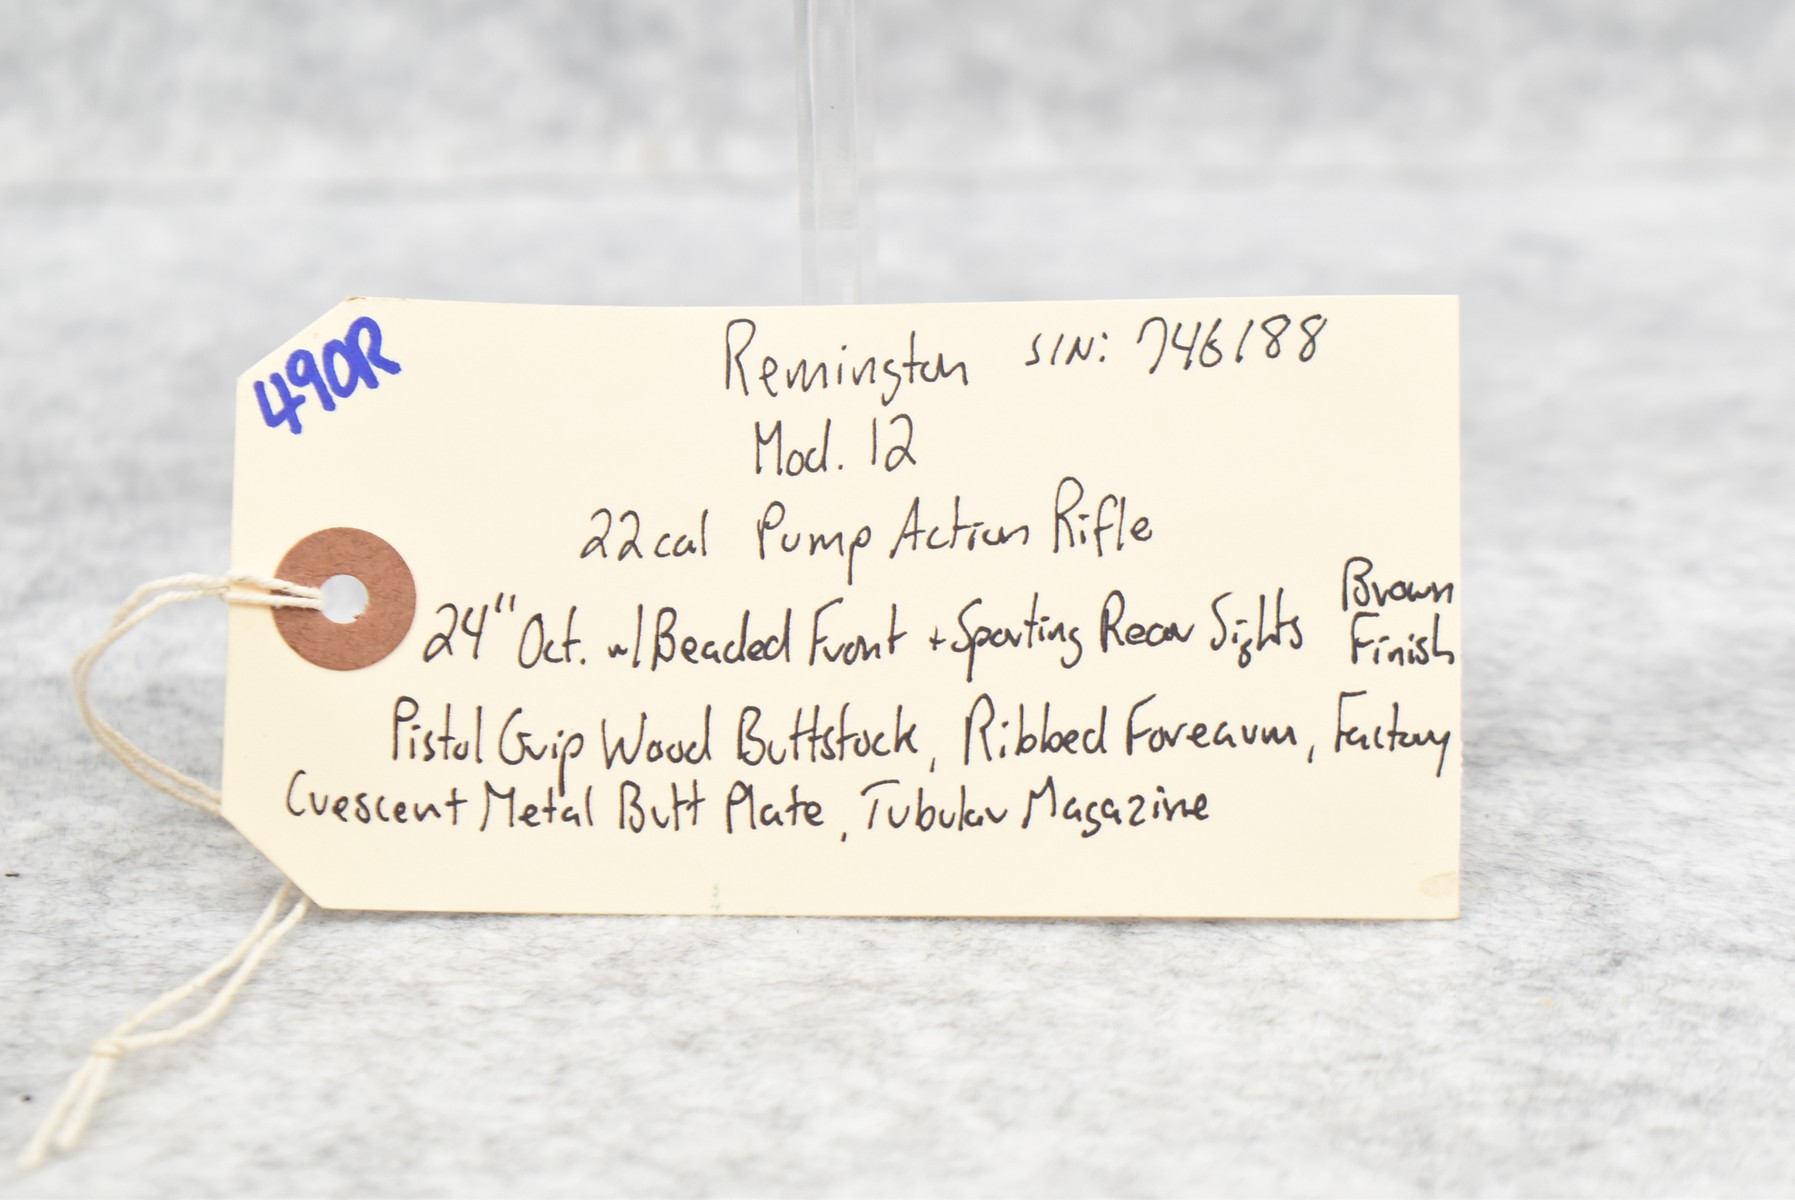 490R
Remington S/N: 746188
Mod. 12
22cal Pump Action Rifle
24" Oct. w/ Beaded Front + Sporting Rear Sights Brown Finish
Pistol Grip Wood Buttstock, Ribbed Forearm, Factory
Crescent Metal Butt Plate, Tubular Magazine